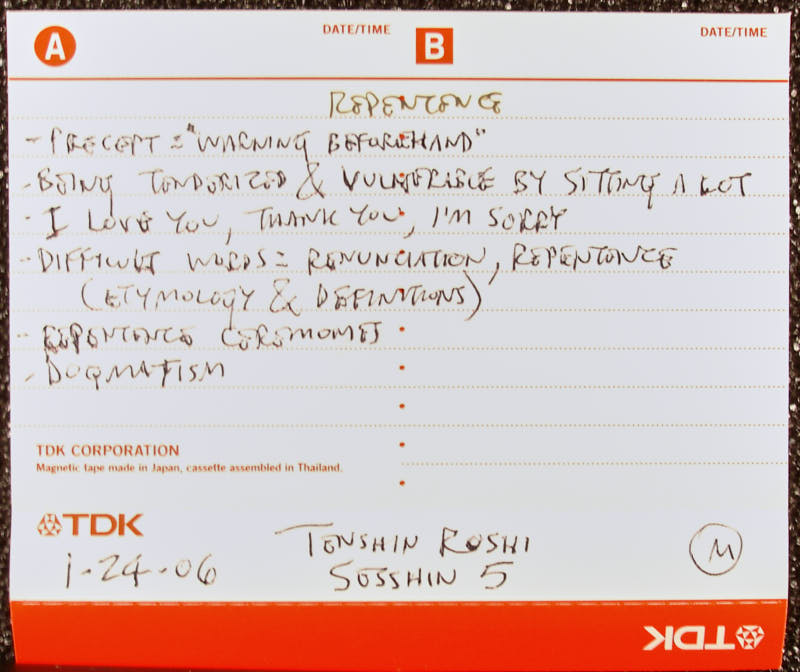 A DATE/TIME B DATE/TIME
REPENTENCE
- PRECEPT = "WARNING BEFOREHAND"
- BEING TENDERIZED & VULNERIBLE BY SITTING A LOT
- I LOVE YOU, THANK YOU, I'M SORRY
- DIFFICULT WORDS = RENUNCIATION, REPENTENCE
(ETYMOLOGY & DEFINITIONS)
- REPENTENCE CEREMONIES
- DOGMATISM
TDK CORPORATION
Magnetic tape made in Japan, cassette assembled in Thailand.
TDK
TENSHIN ROSHI
1-24-06 SESSHIN 5 M
TDK